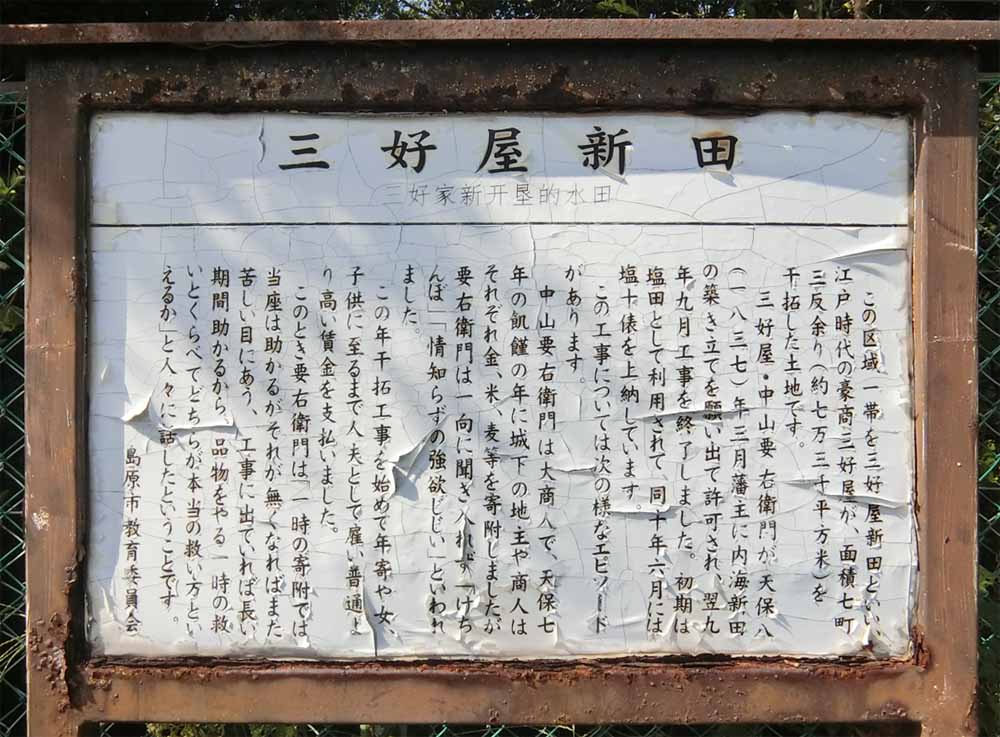 三好屋新田
三好家新开垦的水田
この区域一帯を三好屋新田といい、
江戸時代の豪商三好屋が、面積七町
三反余り(約七万三千平方米)を
干拓した土地です。
三好屋・中山要右衛門が天保八
(一八三七)年三月藩主に内海新田
の築き立てを願い出て許可され、翌九
年九月工事を終了しました。初期は
塩田として利用されて、同十年六月には
塩十俵を上納しています。
この工事については次の様なエピソード
があります。
中山要右衛門は大商人で、天保七
年の飢饉の年に城下の地主や商人は
それぞれ金、米、麦等を寄附しましたが
要右衛門は一向に聞き入れず「けち
んぼ」「情知らずの強欲じじい」といわれ
ました。
この年干拓工事を始めて年寄や女、
子供に至るまで人夫として雇い普通よ
り高い賃金を支払いました。
このとき要右衛門は「一時の寄附では
当座は助かるがそれが無くなればまた
苦しい目にあう、工事に出ていれば長い
期間助かるから、品物をやる一時の救
いとくらべてどちらが本当の救い方とい
えるか」と人々に話したということです。
島原市教育委員会